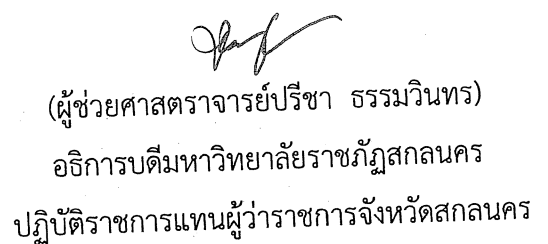 (ผู้ช่วยศาสตราจารย์ปรีชา ธรรมวินทร)
อธิการบดีมหาวิทยาลัยราชภัฏสกลนคร
ปฏิบัติราชการแทนผู้ว่าราชการจังหวัดสกลนคร